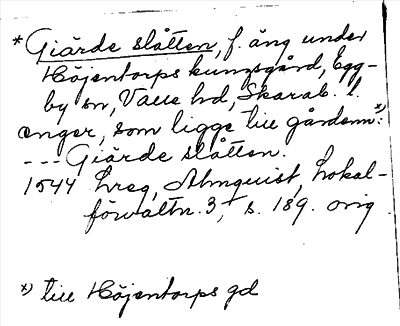 * Giärde slåtten, f. äng under
Höjentorps kungsgård, Egg-
by sn, Valle hd, Skarab. l.
ænger, som ligge till gårdenn *):
--- Giärde slåtten.
1544 Lreg, Almquist, Lokal-
förvaltn. 3, s. 189. orig.
*) till Höjentorps gd